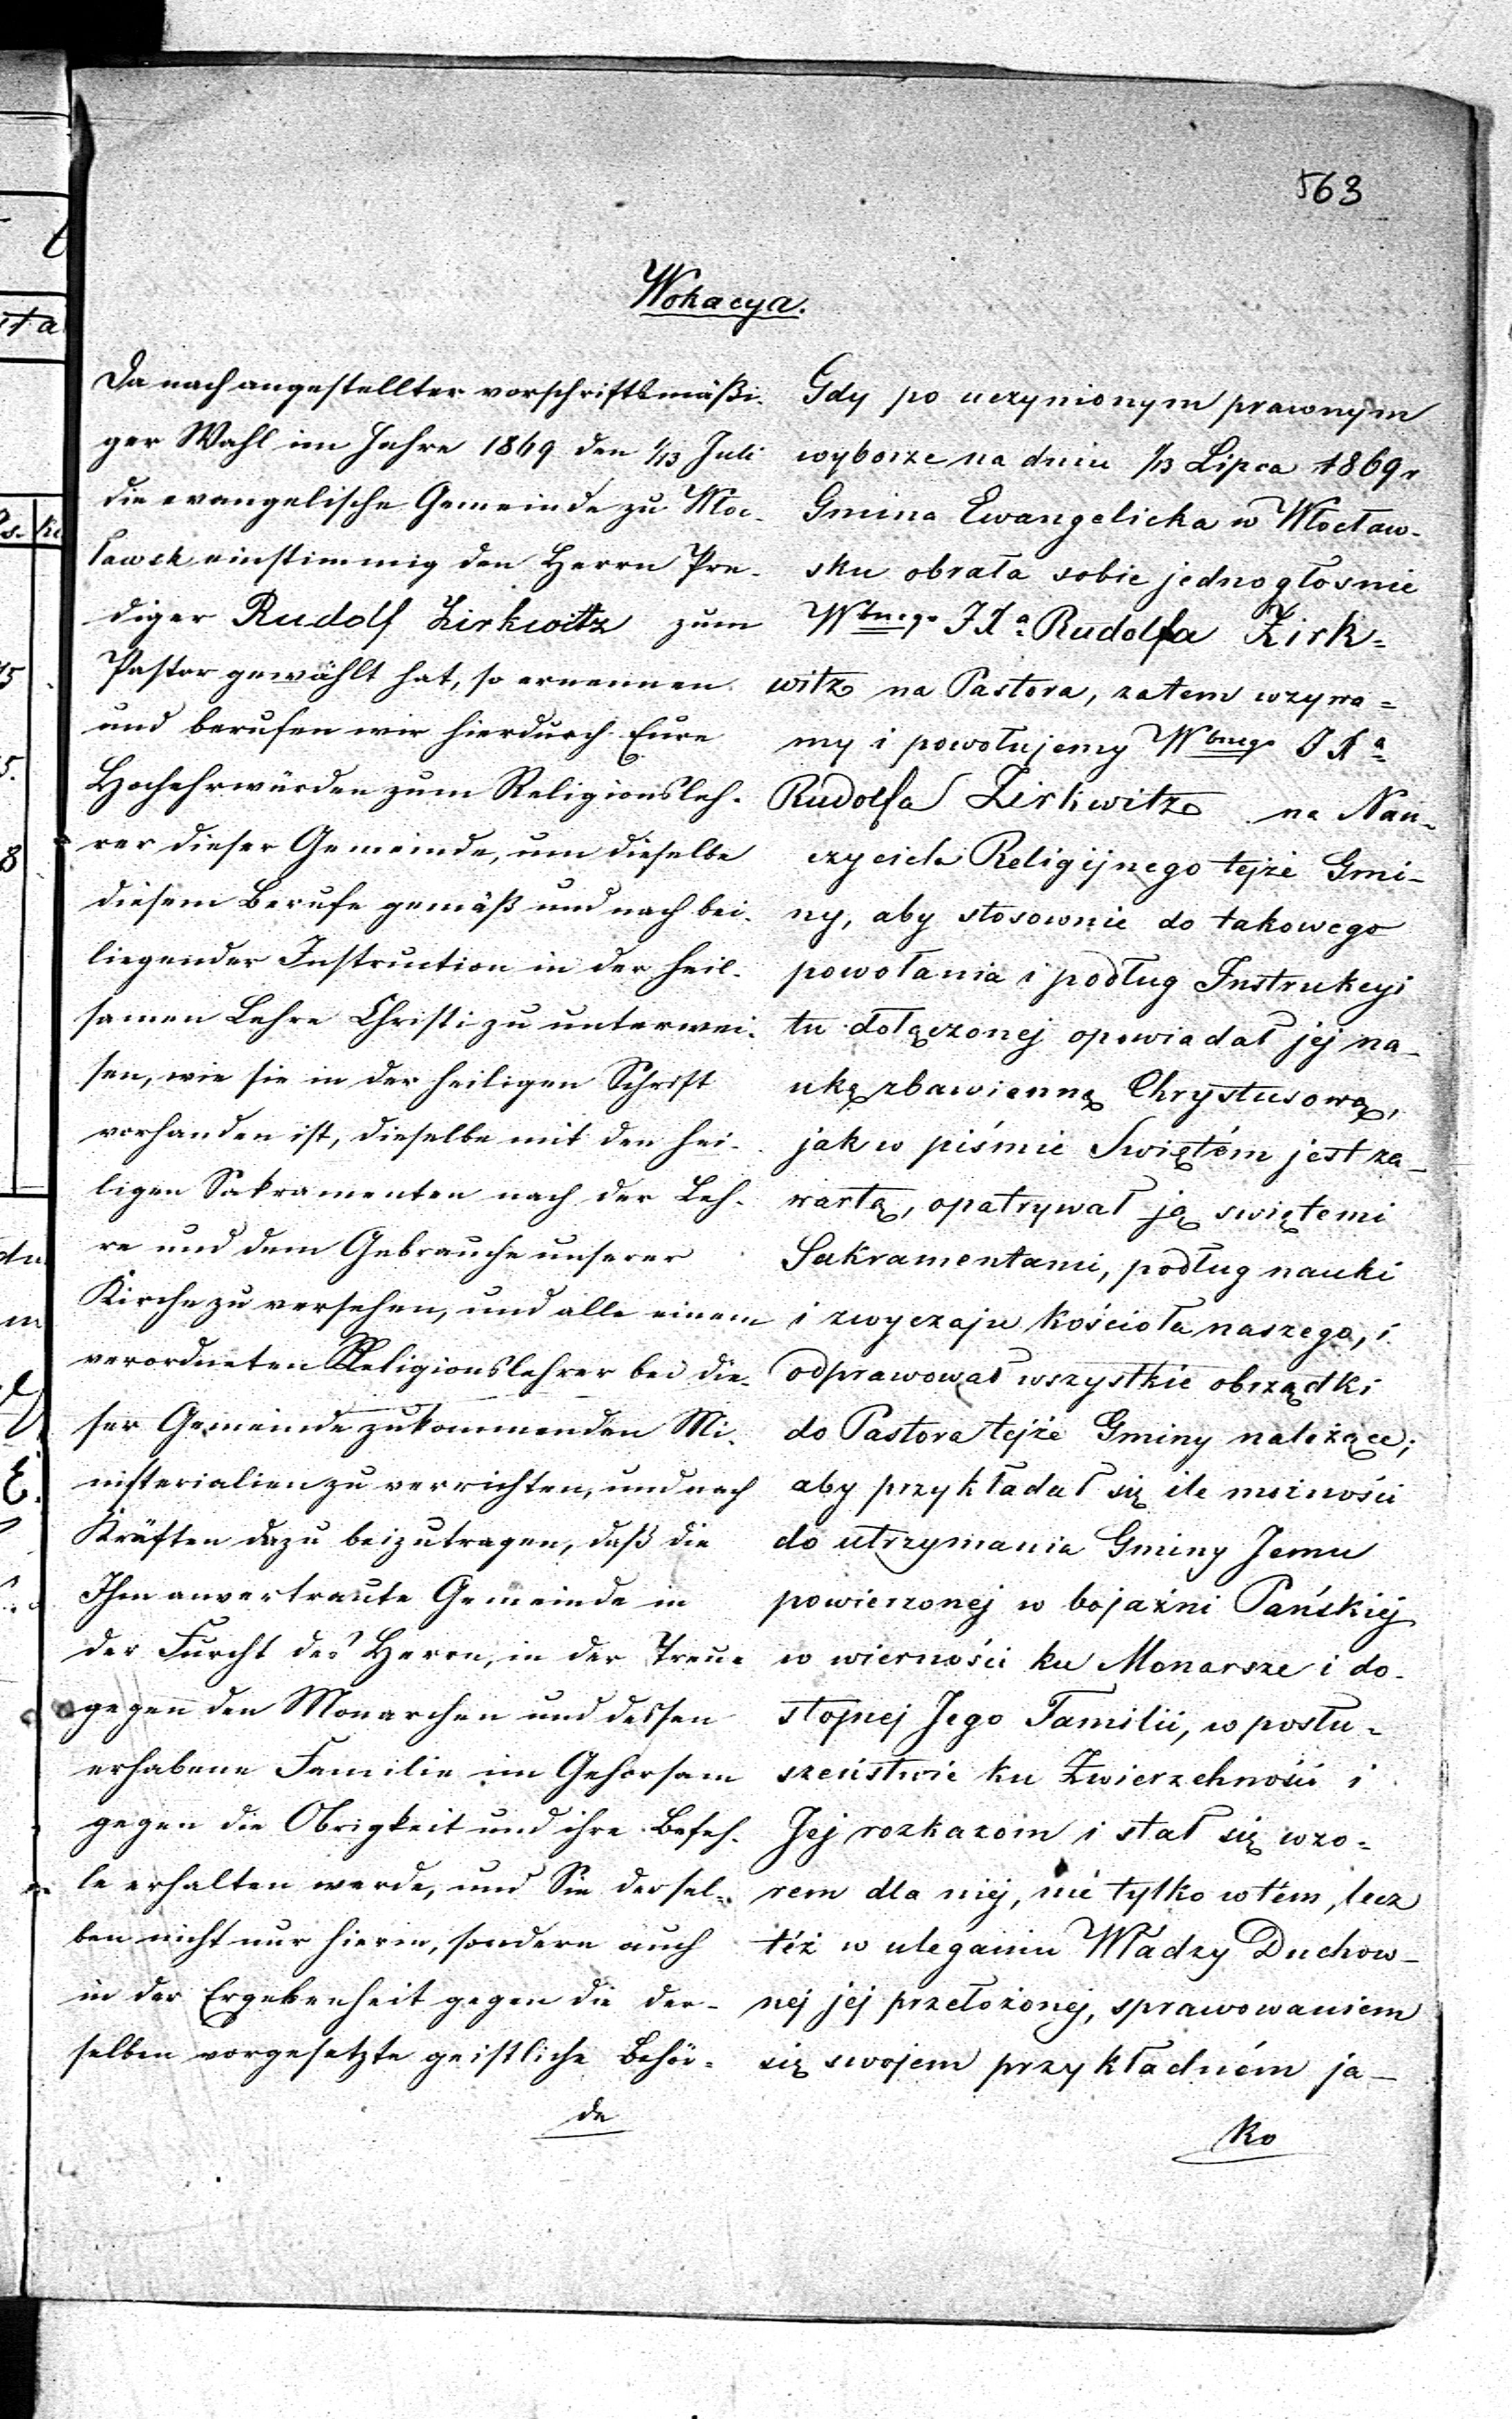 563
Wokacya.
Da nach angestellter vorschriftsmäßi-
ger Wahl im Jahre 1869 den 1/13 Juli
die evangelische Gemeinde zu Włoc-
ławek einstimmig den Herrn Pre-
diger Rudolf Zirkwitz zum
Pastor gewählt hat, so ernennen
und berufen wir hierdurch Eure
Hochehrwürden zum Religionsleh-
rer dieser Gemeinde, um dieselbe
diesem Berufe gemäß und nach bei-
liegender Instruction in der heil-
samen Lehre Christi zu unterwei-
sen, wie sie in der heiligen Schrift
vorhanden ist, dieselbe mit den hei-
ligen Sakramenten nach der Leh-
re und dem Gebrauche unserer
Kirche zu versehen, und alle einem
verordneten Religionslehrer bei die-
ser Gemeinde zukommenden Mi-
nisterialien zu verrichten, und nach
Kräften dazu beizutragen, daß die
Ihm anvertraute Gemeinde in
der Furcht des Herrn, in der Treue
gegen den Monarchen und dessen
erhabene Familie im Gehorsam
gegen die Obrigkeit und ihre Befeh-
le erhalten werde, und Sie dersel-
ben nicht nur hierin, sondern auch
in der Ergebenheit gegen die der-
selben vorgesetzte geistliche Behör-
de
Gdy po uczynionym prawnym
wyborze na dniu 1/13 Lipca 1869 r
Gmina Ewangelicka w Włocław-
sku obrała sobie jednogłosnie
Wbnego JXa Rudolfa Zirk-
witz na Pastora, zatem wzywa-
my i powołujemy Wbnego JXa
Rudolfa Zirkwitz na Nau-
czyciela Religijnego tejże Gmi-
ny, aby stosownie do takowego
powołania i podług Instrukcyi
tu dołączonej opowiadał jej na-
ukę zbawienną Chrystusową,
jak w piśmie Swiętém jest za-
wartą, opatrywał ją swiętemi
Sakramentami, podług nauki
i zwyczaju kościoła naszego, i
odprawował wszystkie obrządki
do Pastora tejże Gminy należące;
aby przykładał się ile możności
do utrzymania Gminy Jemu
powierzonej w bojaźni Pańskiéj
w wierności ku Monarsze i do-
stojnej Jego Familii, w posłu-
szeństwie ku Zwierzchności i
Jej rozkazom i stał się wzo-
rem dla niej, nie tylko w tem, lecz
téż w uleganiu Władzy Duchow-
nej jéj przełożonej, sprawowaniem
się swojem przykładném ja-
ko